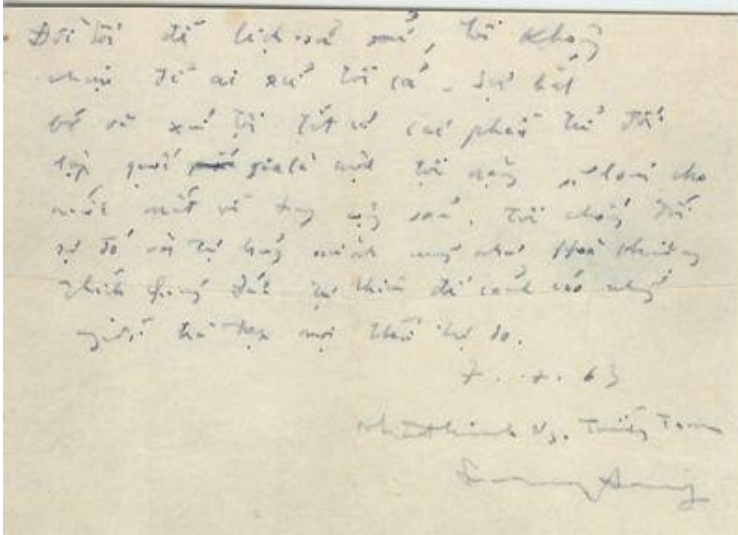 Đời tôi để lịch sử xử, tôi không
chịu để ai xử tôi cả. Sự bắt
bớ và xử tội tất cả các phần tử đối
lập quốc gia là một tội nặng, sẽ làm cho
nước mất về tay cộng sản. Tôi chống đối
sự đó và tự hủy mình cũng như Hòa thượng
Thích Quảng Đức tự thiêu để cảnh cáo những
người chà đạp mọi thứ tự do.
7. 7. 63
Nhất Linh Ng. Tường Tam